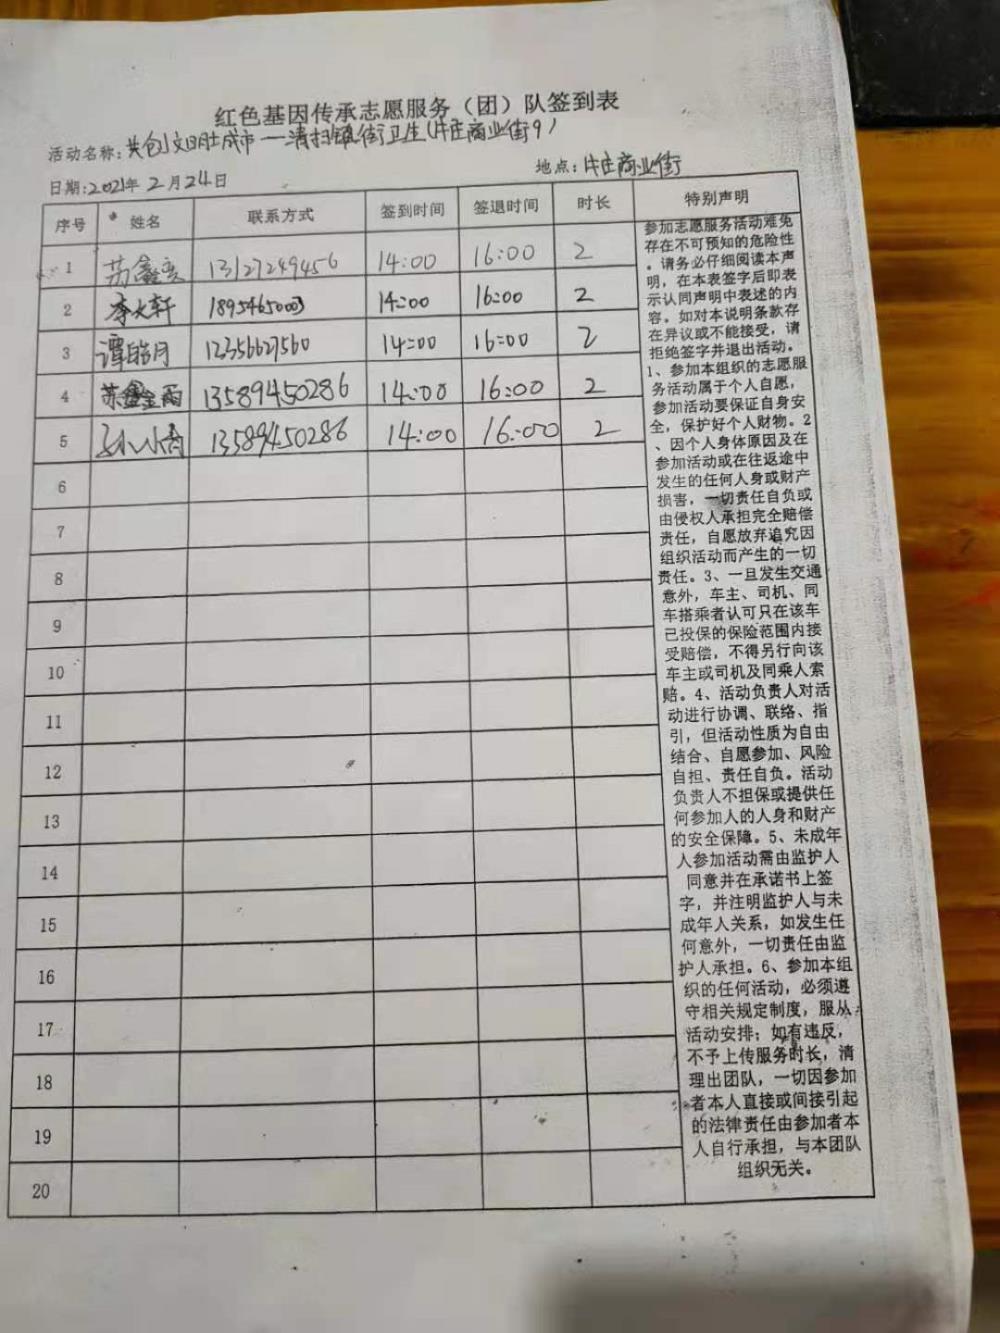 红色基因传承志愿服务（团）队签到表
活动名称：共创文明城市—清扫镇街卫生（牛庄商业街9）
日期：2021年2月24日 地点：牛庄商业街
序号 姓名 联系方式 签到时间 签退时间 时长 特别声明
1 13127249456 14:00 16:00 2
2 李大轩 1895465003 14:00 16:00 2
3 谭皓月 12356627560 14:00 16:00 2
4 苏鑫雨 13589450286 14:00 16:00 2
5 13589450286 14:00 16:00 2
6
7
8
9
10
11
12
13
14
15
16
17
18
19
20
参加志愿服务活动难免
存在不可预知的危险性
。请务必仔细阅读本声
明，在本表签字后即表
示认同声明中表述的内
容。如对本说明条款存
在异议或不能接受，请
拒绝签字并退出活动。
1、参加本组织的志愿服
务活动属于个人自愿，
参加活动要保证自身安
全，保护好个人财物。2
、因个人身体原因及在
参加活动或在往返途中
发生的任何人身或财产
损害，一切责任自负或
由侵权人承担完全赔偿
责任，自愿放弃追究因
组织活动而产生的一切
责任。3、一旦发生交通
意外，车主、司机、同
车搭乘者认可只在该车
已投保的保险范围内接
受赔偿，不得另行向该
车主或司机及同乘人索
赔。4、活动负责人对活
动进行协调、联络、指
引，但活动性质为自由
结合、自愿参加、风险
自担、责任自负。活动
负责人不担保或提供任
何参加人的人身和财产
的安全保障。5、未成年
人参加活动需由监护人
同意并在承诺书上签
字，并注明监护人与未
成年人关系，如发生任
何意外，一切责任由监
护人承担。6、参加本组
织的任何活动，必须遵
守相关规定制度，服从
活动安排；如有违反，
不予上传服务时长，清
理出团队，一切因参加
者本人直接或间接引起
的法律责任由参加者本
人自行承担，与本团队
组织无关。